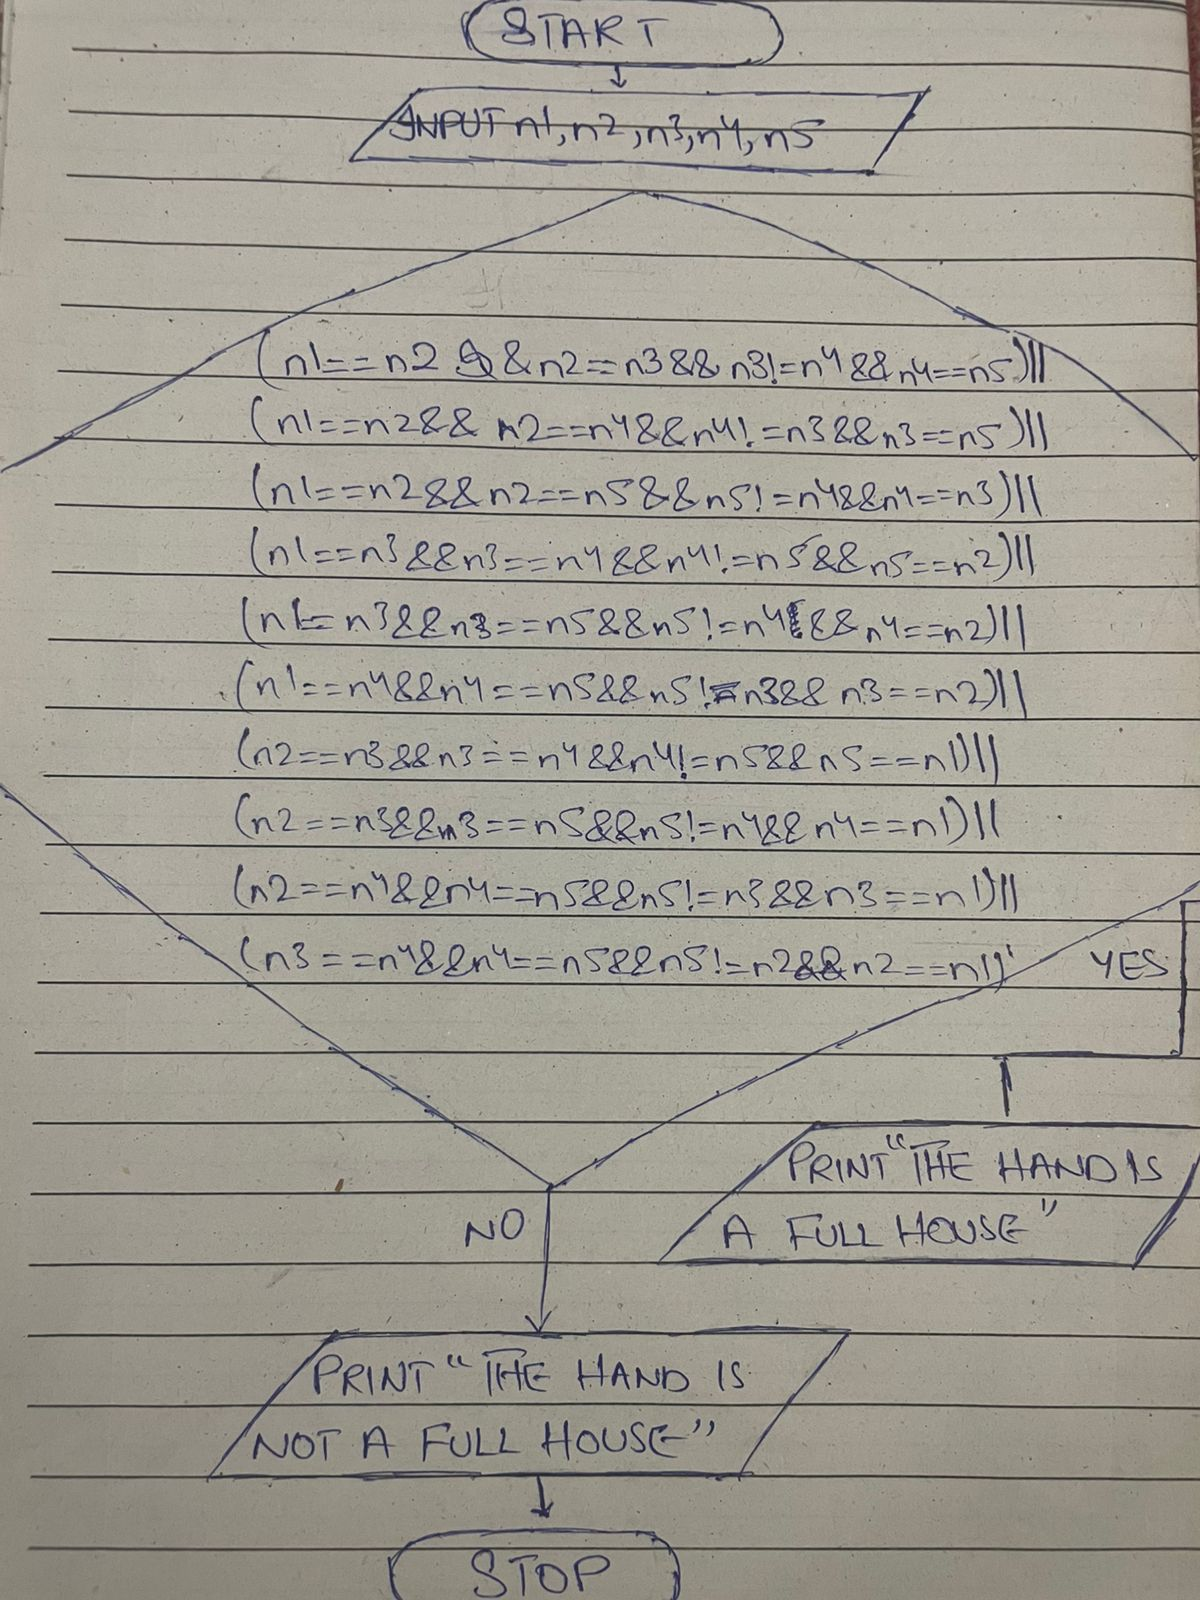 START
INPUT n1, n2, n3, n4, n5
(n1==n2 && n2==n3 && n3!=n4 && n4==n5)||
(n1==n2&& n2==n4&&n4!=n3&&n3==n5)||
(n1==n2&&n2==n5&&n5!=n4&&n4==n3)||
(n1==n3&&n3==n4&&n4!=n5&&n5==n2)||
(n1= n3&&n3==n5&&n5!=n4&&n4==n2)||
(n1==n4&&n4==n5&&n5!=n3&& n3==n2)||
(n2==n3&&n3==n4&&n4!=n5&&n5==n1)||
(n2==n3&&n3==n5&&n5!=n4&&n4==n1)||
(n2==n4&&n4==n5&&n5!=n3&&n3==n1)||
(n3==n4&&n4==n5&&n5!=n2&&n2==n1)
YES
PRINT "THE HAND IS
A FULL HOUSE"
NO
PRINT "THE HAND IS
NOT A FULL HOUSE"
STOP